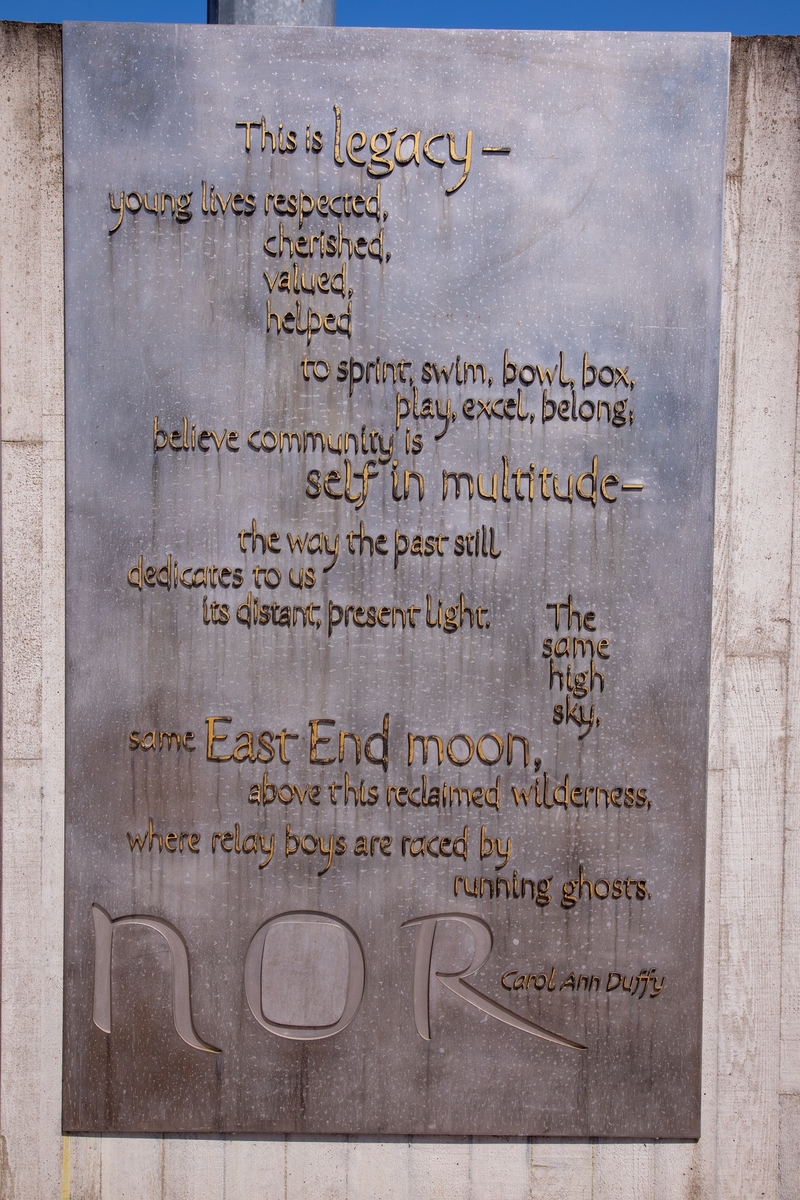 This is legacy –
young lives respected,
cherished,
valued,
helped
to sprint, swim, bowl, box,
play, excel, belong;
believe community is
self in multitude –
the way the past still
dedicates to us
its distant, present light.
The
same
high
sky,
same East End moon,
above this reclaimed wilderness,
where relay boys are raced by
running ghosts.
NOR
Carol Ann Duffy